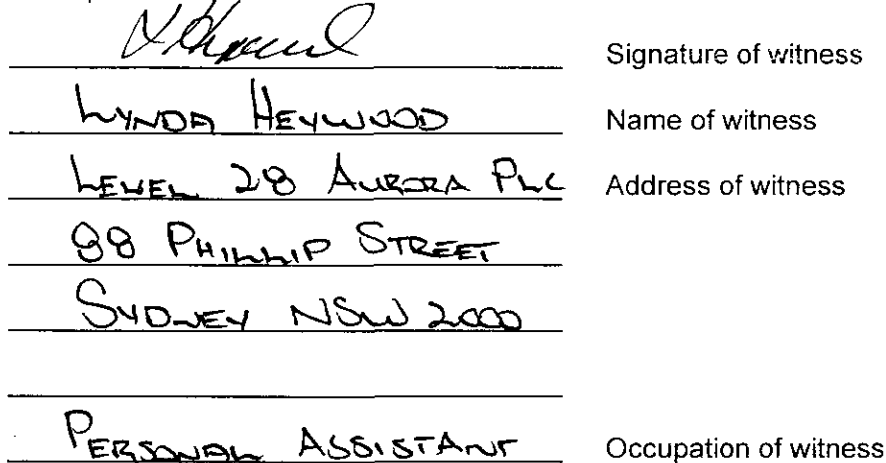 Signature of witness
LYNDA HEYWOOD Name of witness
LEVEL 28 AURORA PLC Address of witness
88 PHILLIP STREET
SYDNEY NSW 2000
PERSONAL ASSISTANT Occupation of witness